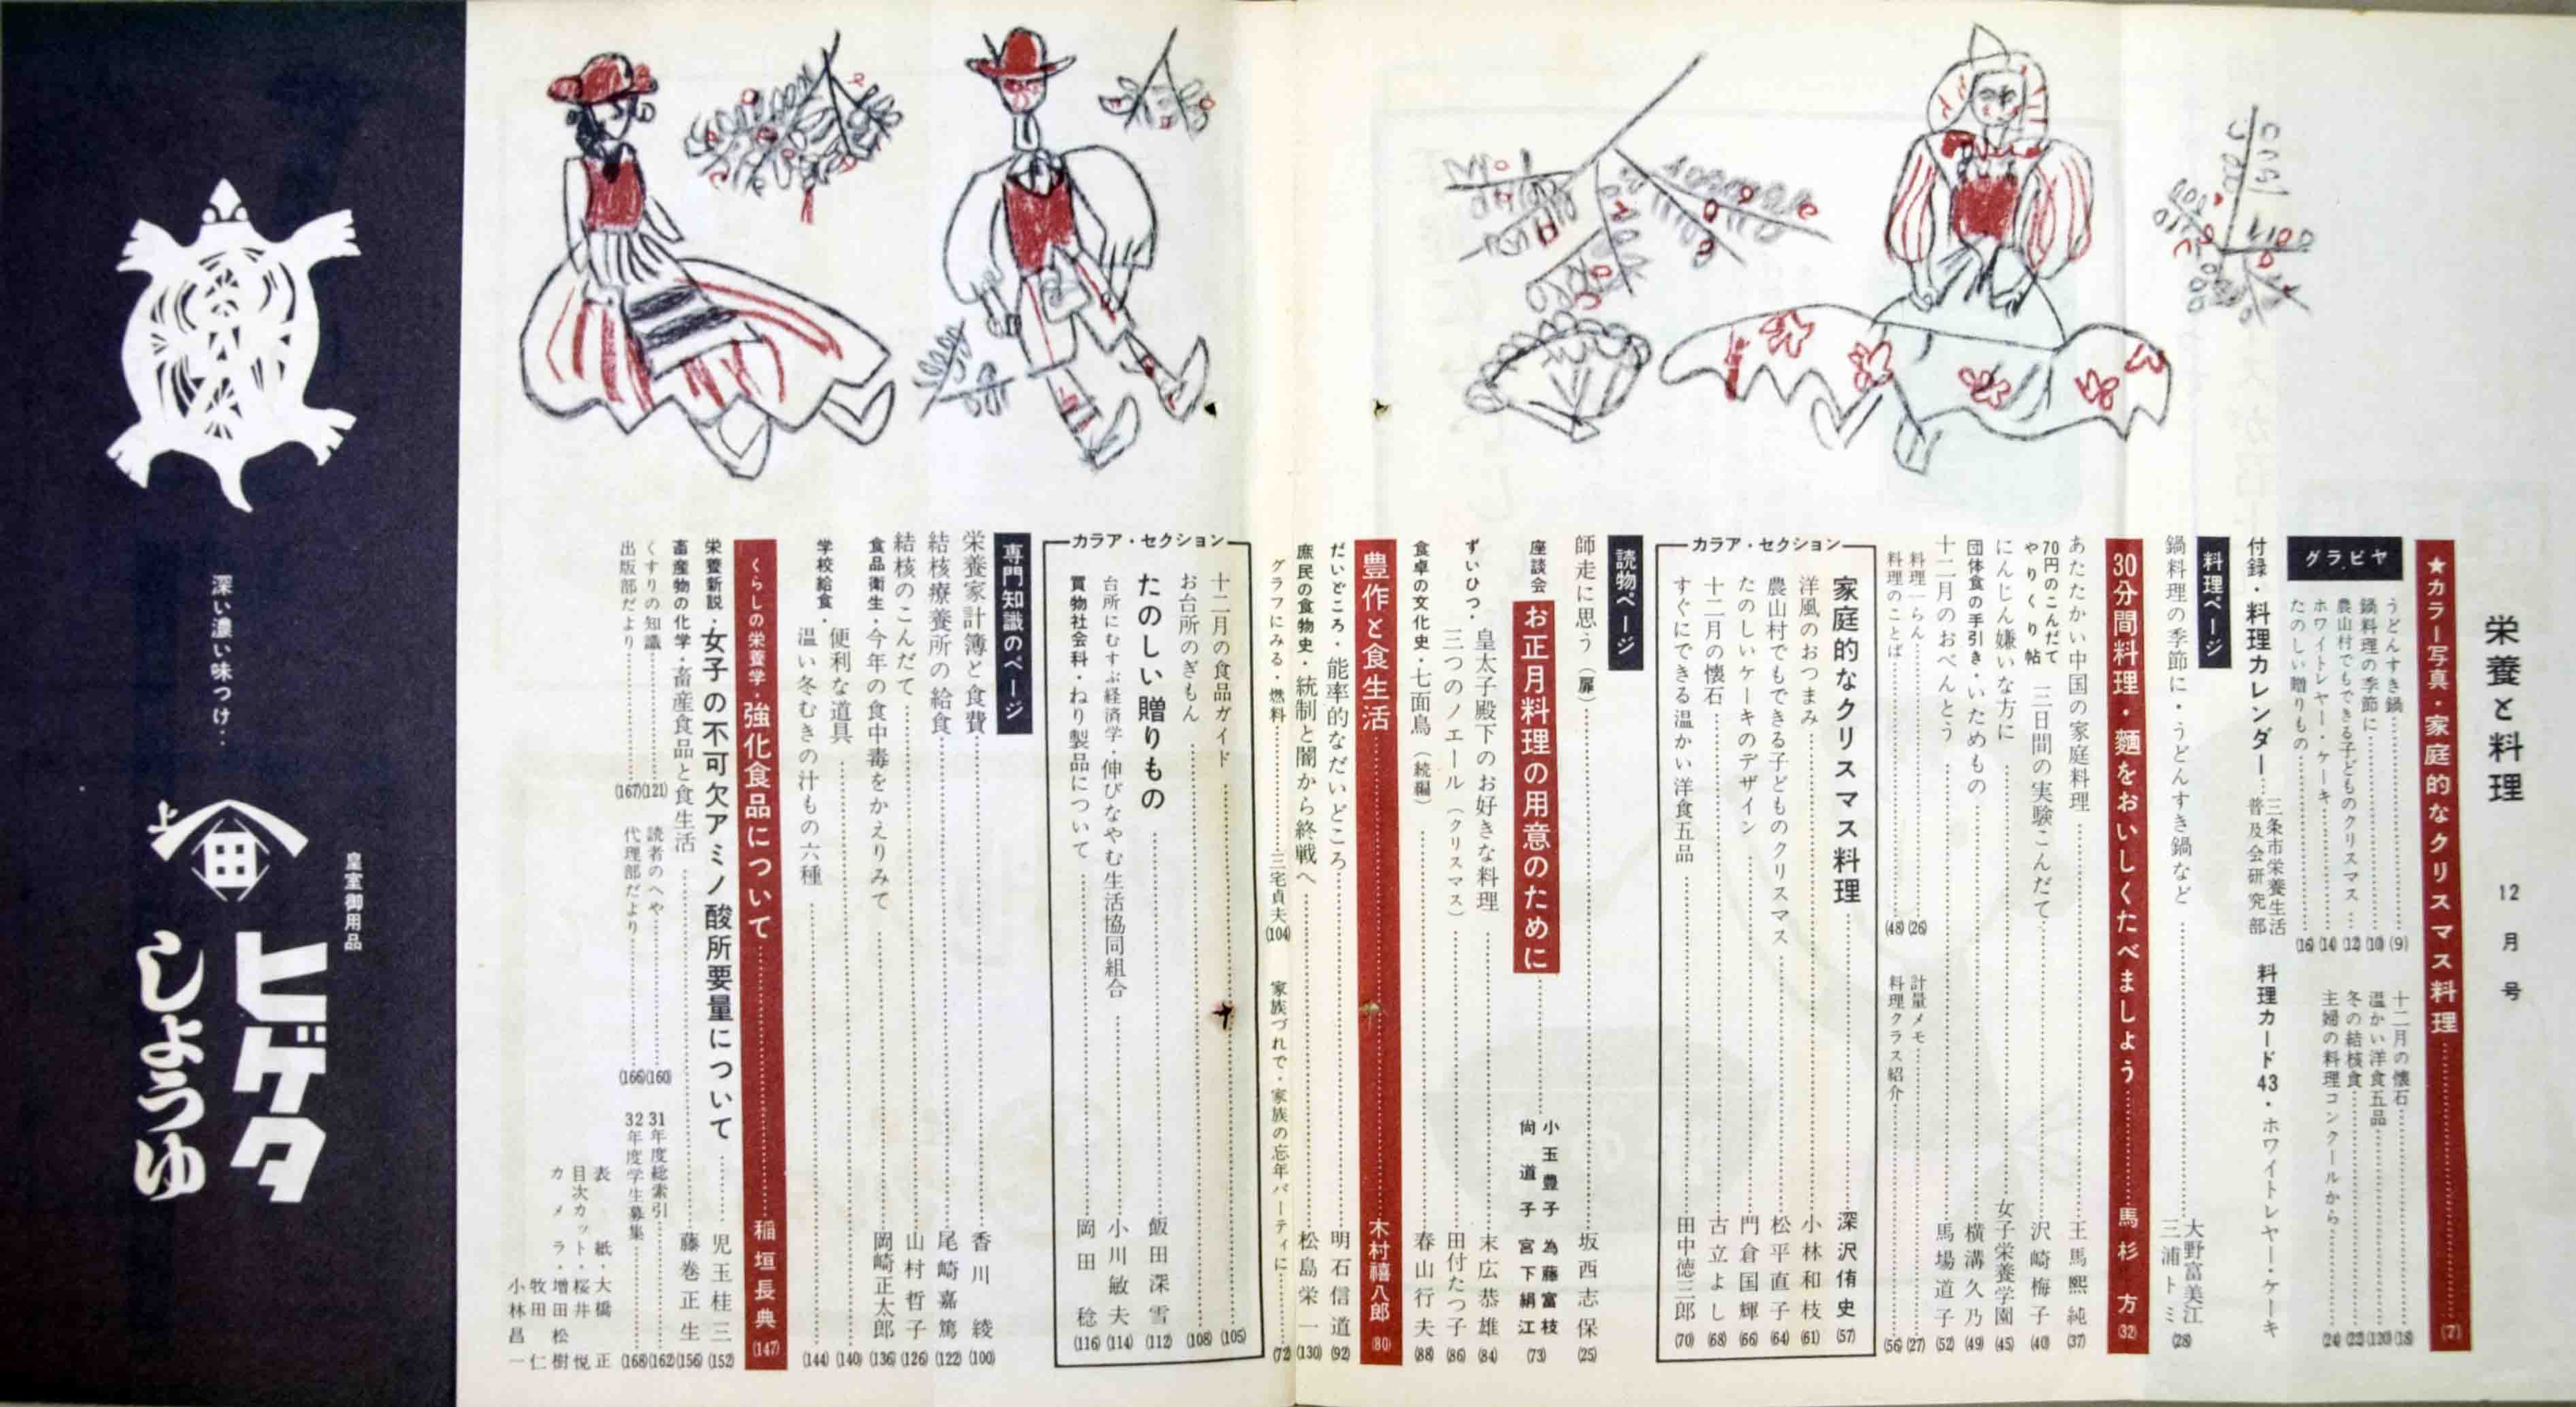 栄養と料理 12月号
★カラー写真・家庭的なクリスマス料理……(7)
グラビヤ
うどんすき鍋……(9)
鍋料理の季節に……(10)
農山村でもできる子どものクリスマス…(12)
ホワイトレヤー・ケーキ……(14)
たのしい贈りもの……(16)
十二月の懐石……(18)
温かい洋食五品……(120)
冬の結核食……(22)
主婦の料理コンクールから……(24)
付録・料理カレンダー…三条市栄養生活普及会研究部
料理カード43・ホワイトレヤー・ケーキ
料理ページ
鍋料理の季節に・うどんすき鍋など……大野富美江 三浦トミ(28)
30分間料理・麺をおいしくたべましょう……馬杉方(32)
あたたかい中国の家庭料理……王馬熙純(37)
70円のこんだて やりくり帖 三日間の実験こんだて……沢崎梅子(40)
にんじん嫌いな方に……女子栄養学園(45)
団体食の手引き・いためもの……横溝久乃(49)
十二月のおべんとう……馬場道子(52)
料理一らん……(26)
料理のことば……(48)
計量メモ……(27)
料理クラス紹介……(56)
カラア・セクション
家庭的なクリスマス料理……深沢侑史(57)
洋風のおつまみ……小林和枝(61)
農山村でもできる子どものクリスマス……松平直子(64)
たのしいケーキのデザイン……門倉国輝(66)
十二月の懐石……古立よし(68)
すぐにできる温かい洋食五品……田中徳三郎(70)
読物ページ
師走に思う(扉)……坂西志保(25)
座談会 お正月料理の用意のために……小玉豊子 為藤富枝 尚道子 宮下絹江(73)
ずいひつ・皇太子殿下のお好きな料理……末広恭雄(84)
三つのノエール(クリスマス)……田付たつ子(86)
食卓の文化史・七面鳥(続編)……春山行夫(88)
豊作と食生活……木村禧八郎(80)
だいどころ・能率的なだいどころ……明石信道(92)
庶民の食物史・統制と闇から終戦へ……松島栄一(130)
グラフにみる・燃料……三宅貞夫(104)
家族づれで・家族の忘年パーティに……(72)
カラア・セクション
十二月の食品ガイド……(105)
お台所のぎもん……(108)
たのしい贈りもの……飯田深雪(112)
台所にむすぶ経済学・伸びなやむ生活協同組合……小川敏夫(114)
買物社会科・ねり製品について……岡田稔(116)
専門知識のページ
栄養家計簿と食費……香川綾(100)
結核療養所の給食……尾崎嘉篤(122)
結核のこんだて……山村哲子(126)
食品衛生・今年の食中毒をかえりみて……岡崎正太郎(136)
便利な道具……(140)
学校給食・温い冬むきの汁もの六種……(144)
くらしの栄養学・強化食品について……稲垣長典(147)
栄養新説・女子の不可欠アミノ酸所要量について……児玉桂三(152)
畜産物の化学・畜産食品と食生活……藤巻正生(156)
くすりの知識……(121)
出版部だより……(167)
読者のへや……(160)
代理部だより……(166)
31年度総索引……(162)
32年度学生募集……(168)
表紙・大橋正
目次カット・桜井悦
カメラ・増田松樹
牧田仁
小林昌一
深い濃い味つけ‥
皇室御用品
上
ヒゲタ
しょうゆ